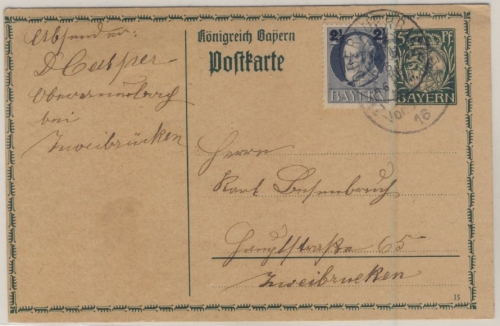 Absender:
D. Cesper
Oberauerbach
bei
Zweibrücken
Königreich Bayern
Postkarte
2½ 2½
BAYERN
5 PF
BAYERN
Vor
16
Herrn
Karl Busenbruch
Hauptstraße 65
Zweibrucken
15